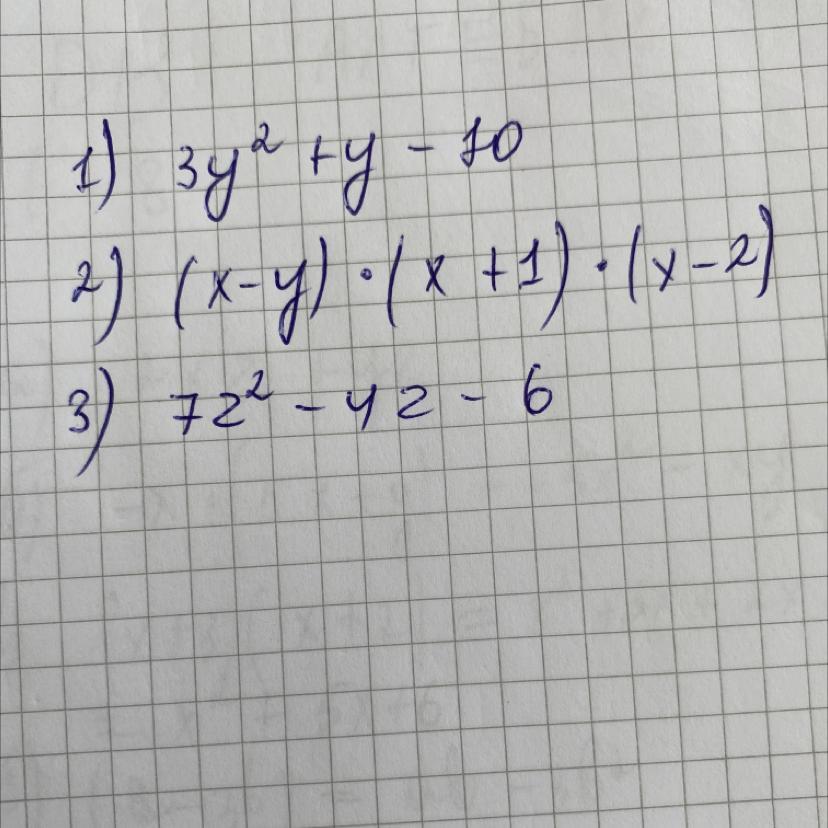 1) 3y² + y - 10
2) (x-y)·(x +1)·(x-2)
3) 7z² - 4z - 6